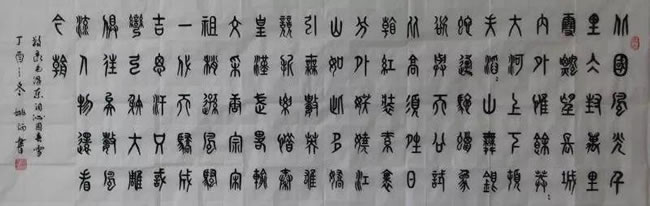 北國風光千
里冰封萬里
雪飄望長城
內外惟餘莽〻
大河上下頓
失滔〻山舞銀
蛇原馳蠟象
欲與天公試
比高須晴日
看紅裝素裹
分外妖嬈江
山如此多嬌
引無數英雄
競折腰惜秦
皇漢武略輸
文采唐宗宋
祖稍遜風騷
一代天驕成
吉思汗只識
彎弓射大雕
俱往矣數風
流人物還看
今朝
錄毛澤東詞沁園春雪
丁酉之冬 書